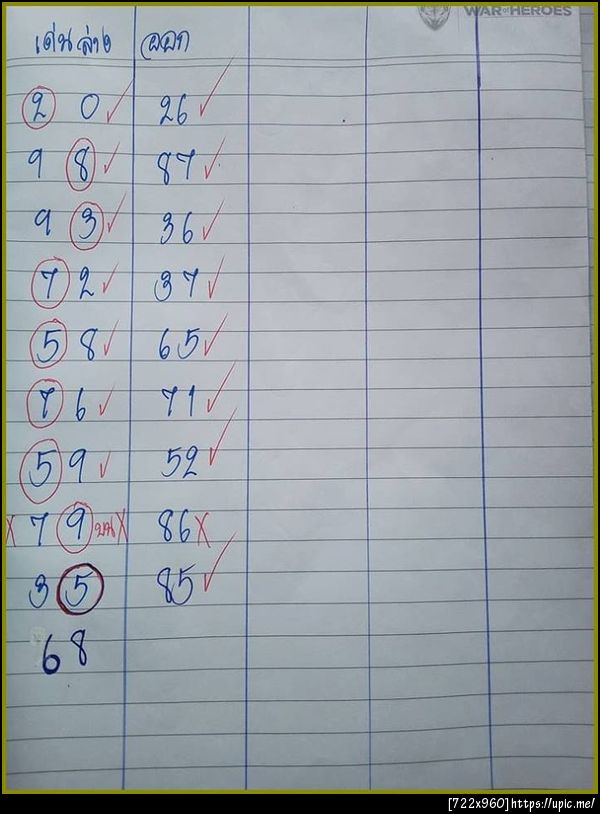 WAR OF HEROES
เด่นล่าง ออก
2 0 26
9 8 87
9 3 36
7 2 37
5 8 65
7 6 71
5 9 52
7 9 บน 86
3 5 85
68
[722x960]https://upic.me/